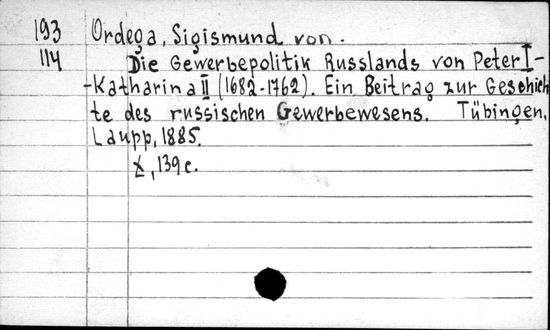 193 Ordega, Sigismund von.
114 Die Gewerbepolitik Russlands von Peter I-
-Katharina II (1682-1762). Ein Beitrag zur Geschich
te des russischen Gewerbewesens. Tübingen,
Laupp, 1885.
X, 139c.